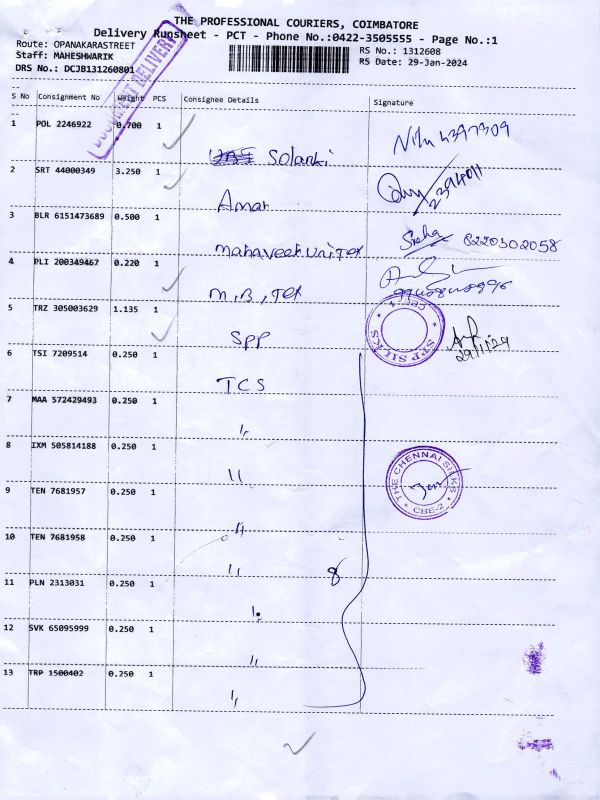 THE PROFESSIONAL COURIERS, COIMBATORE
Delivery Runsheet - PCT - Phone No.:0422-3505555 - Page No.:1
Route: OPANAKARASTREET
RS No.: 1312608
Staff: MAHESHWARIK
RS Date: 29-Jan-2024
DRS No.: DCJB131260801
DOCUMENT DELIVERY
S No Consignment No Weight PCS Consignee Details Signature
1 POL 2246922 0.700 1 Solanki
2 SRT 44000349 3.250 1 Amar
3 BLR 6151473689 0.500 1 mahaveer unitex 8220302058
4 PLI 200349467 0.220 1 M,B,Tex
5 TRZ 305003629 1.135 1 SPP
SPP SILKS
29/1/24
6 TSI 7209514 0.250 1 TCS
7 MAA 572429493 0.250 1 "
8 IXM 505814188 0.250 1 "
THE CHENNAI SILKS
CBE-2
9 TEN 7681957 0.250 1 "
10 TEN 7681958 0.250 1 " 8
11 PLN 2313031 0.250 1 "
12 SVK 65095999 0.250 1 "
13 TRP 1500402 0.250 1 "